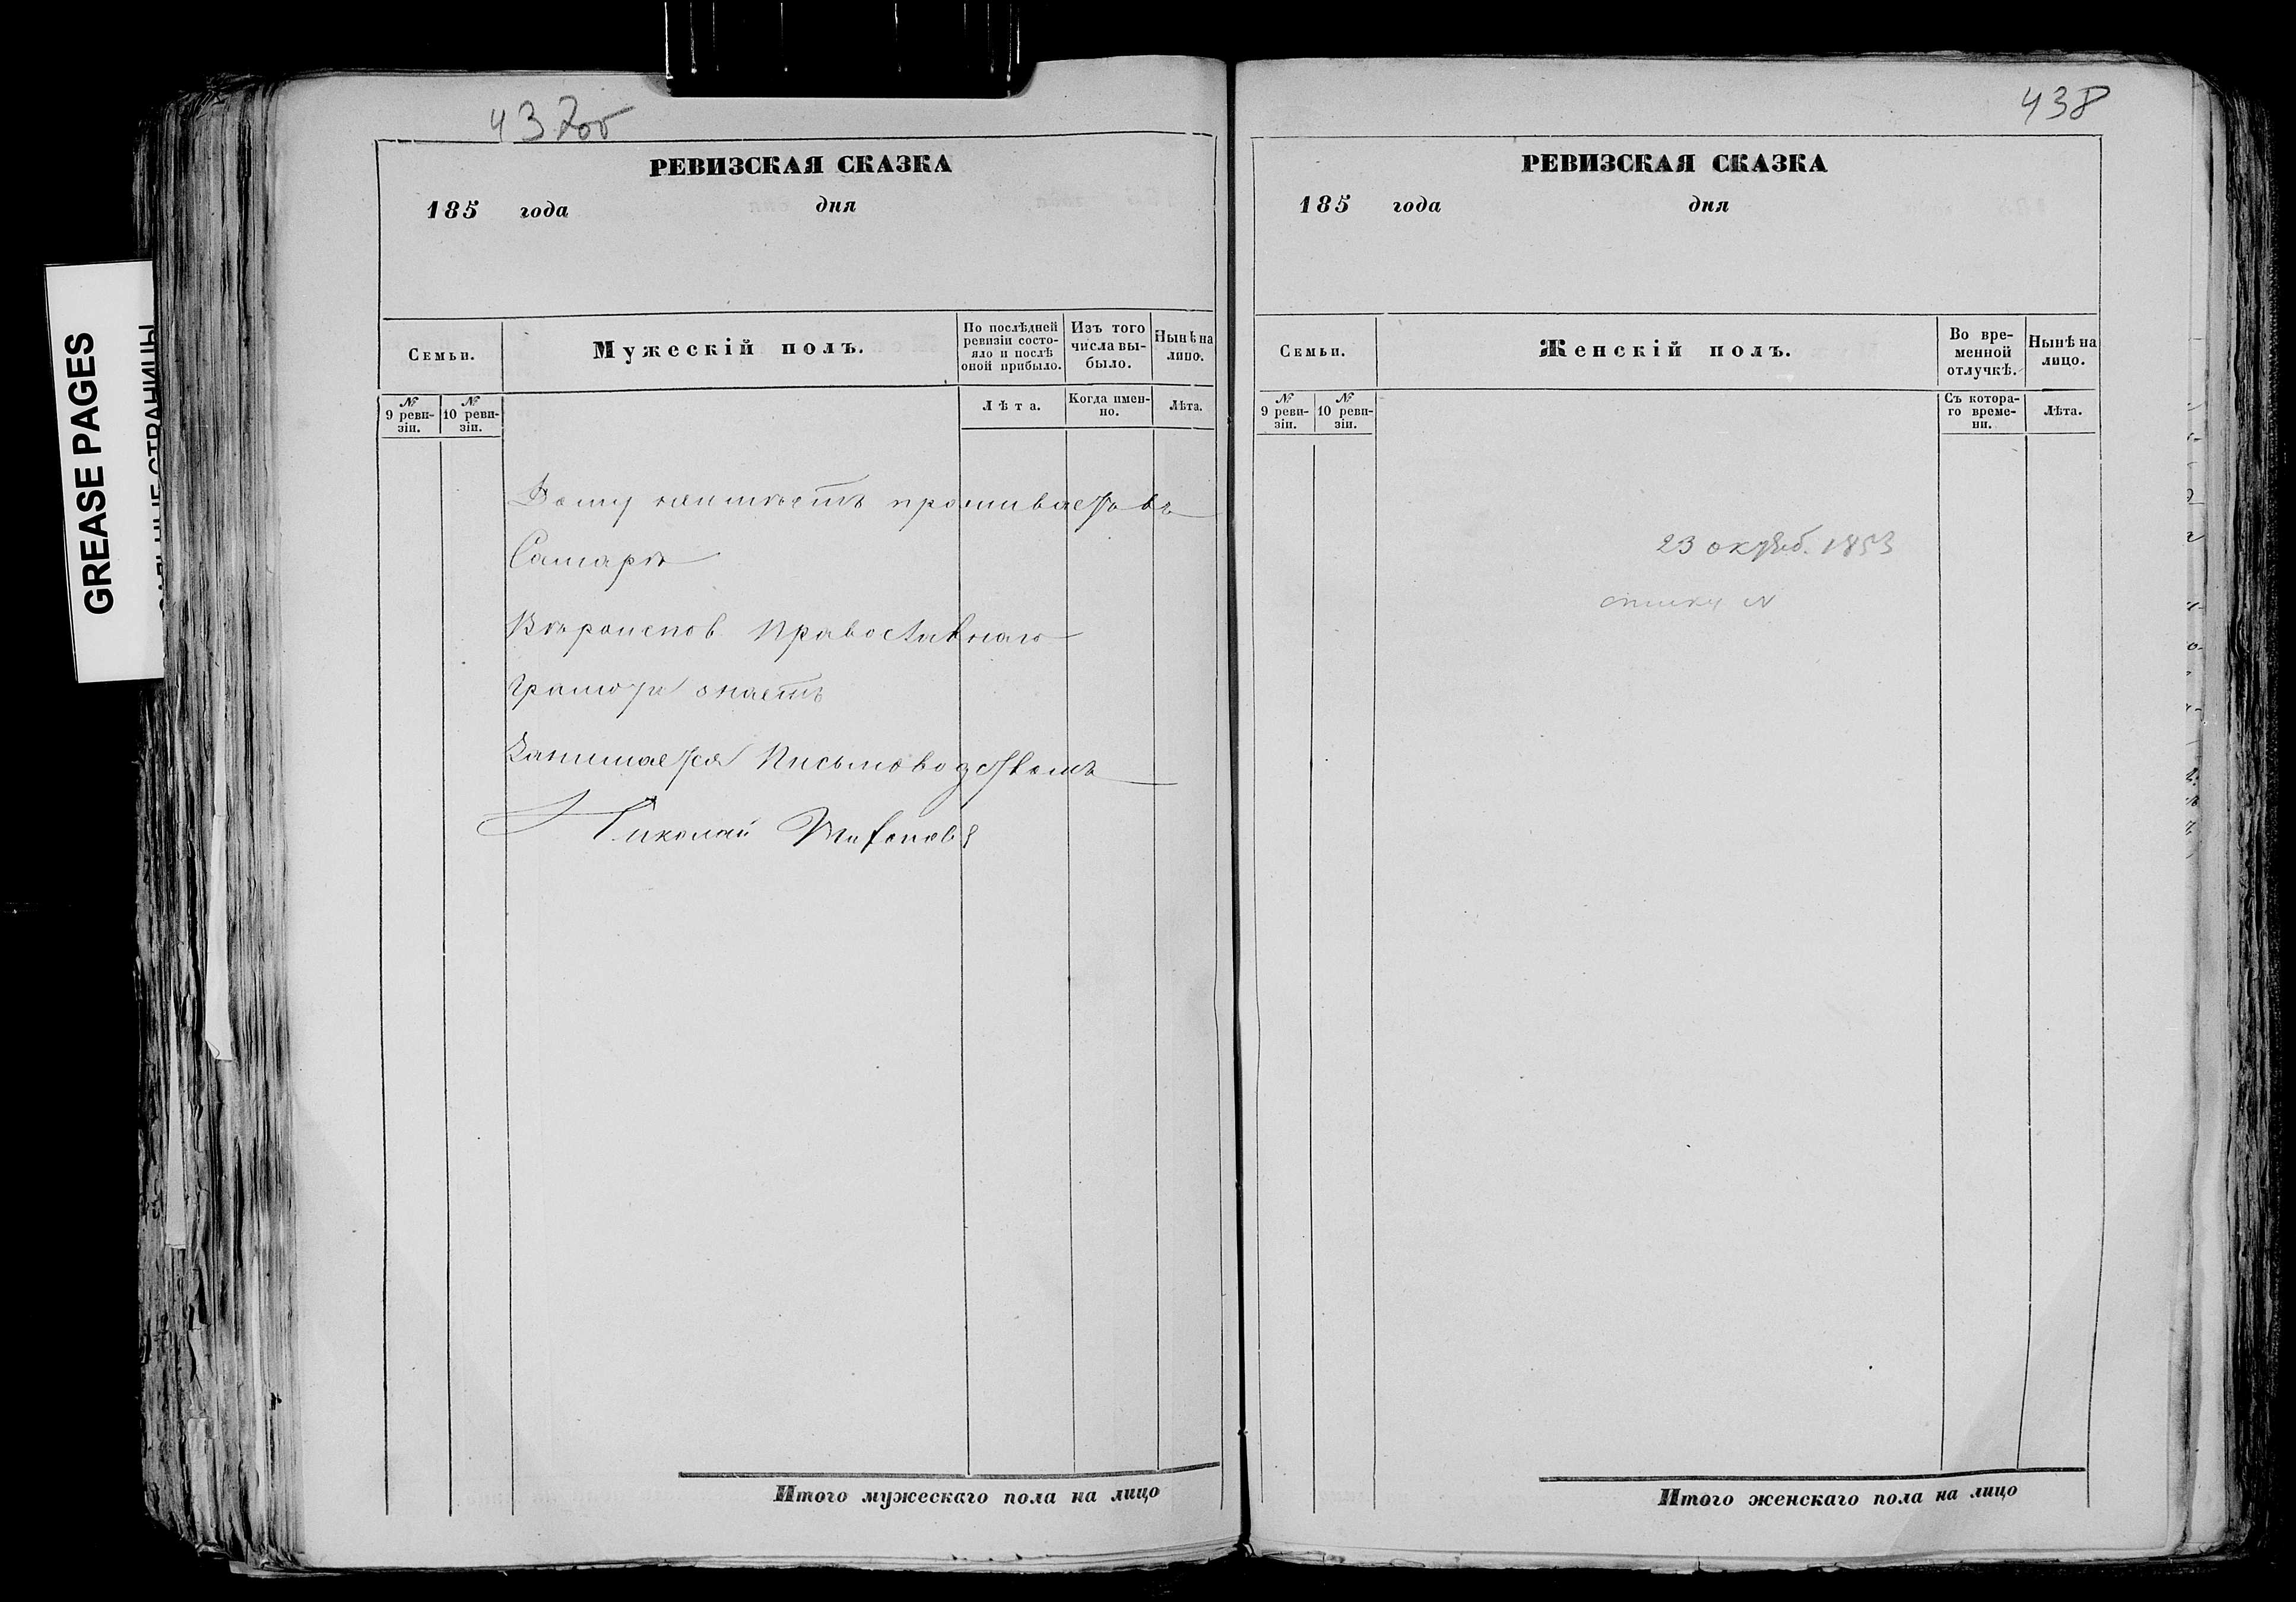 437об
РЕВИЗСКАЯ СКАЗКА
185 года дня
Семьи.
Мужескій полъ.
По послѣдней ревизіи состо-
яло и послѣ
оной прибыло.
Изъ того
числа вы-
было.
Нынѣ на
лицо.
№
9 реви-
зіи.
№
10 реви-
зіи.
Лѣта.
Когда имен-
но.
Лѣта.
Дому неимѣетъ проживаетъ въ
Самарѣ
Вѣроиспов. Православнаго
Грамотѣ знаетъ
Занимается Письмоводствомъ
Николай
Итого мужескаго пола на лицо
438
РЕВИЗСКАЯ СКАЗКА
185 года дня
Семьи.
Женскій полъ.
Во вре-
менной
отлучкѣ.
Нынѣ на
лицо.
№
9 реви-
зіи.
№
10 реви-
зіи.
Съ котора-
го време-
ни.
Лѣта.
23 октяб. 1853
Итого женскаго пола на лицо
GREASE PAGES